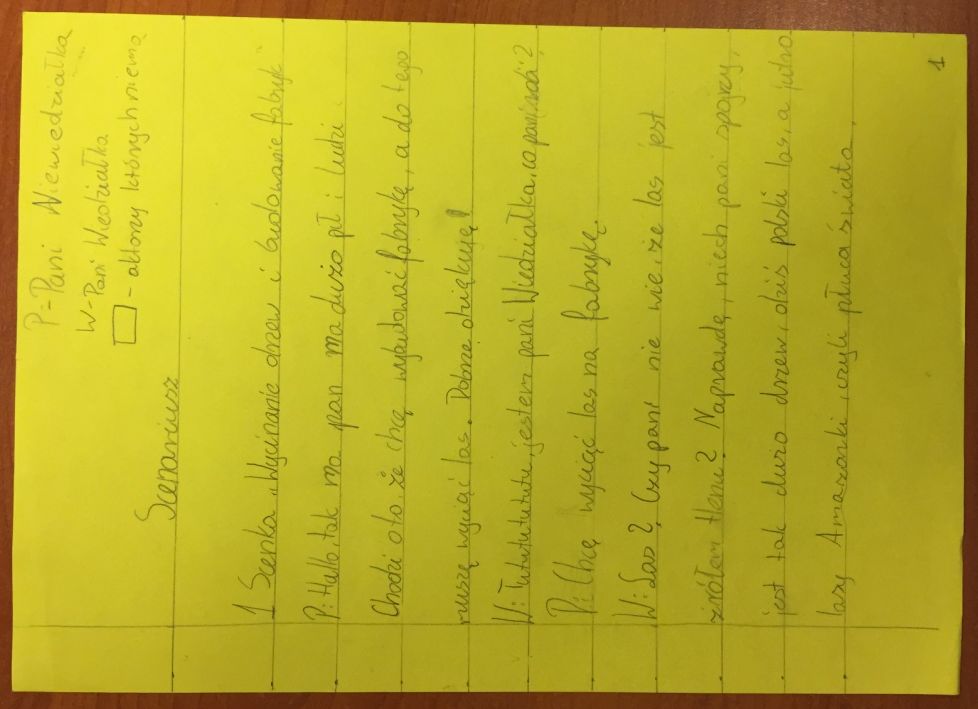 P = Pani Niewiedziałka
W - Pani Wiedziałka
- aktorzy których niema
Scenariusz
1 Scenka „Wycinanie drzew i budowanie fabryk"
P: Hallo, tak ma pan ma dużo pił i ludzi.
Chodzi o to, że chcę wybudować fabrykę, a do tego
muszę wyciąć las. Dobrze dziękuję!
W: Tutututututu, jestem pani Wiedziałka, co pani robi?
P: Chcę wyciąć las na fabrykę.
W: Las?, Czy pani nie wie, że las jest
źrółem tlenu? Naprawdę, niech pani spojrzy,
jest tak dużo drzew, dziś polski las, a jutro
lasy Amazonki, czyli płuca świata.
1